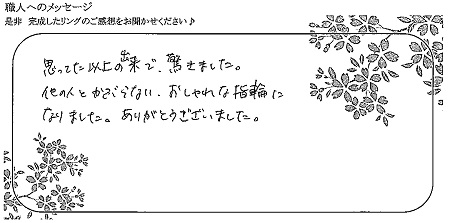 職人へのメッセージ
是非 完成したリングのご感想をお聞かせください♪
思ってた以上の出来で、驚きました。
他の人とかぶらない、おしゃれな指輪に
なりました。ありがとうございました。